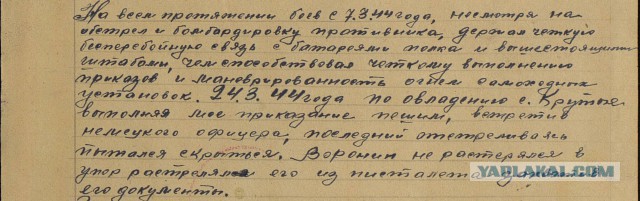 На всем протяжении боев с 7.3.44 года, несмотря на
обстрел и бомбардировку противника, держал четкую
бесперебойную связь с батареями полка и вышестоящими
штабами, чем способствовал четкому выполнению
приказов и маневрированность огнем самоходных
установок. 24.3.44 года по овладению с. Крутые
выполняя мое приказание пешим, встретив
немецкого офицера, последний отстреливаясь
пытался скрыться. Воронин не растерялся в
упор растрелял его из пистолета
его документы.
YAPLAKAL.COM